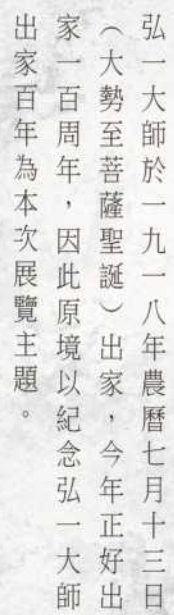 弘一大師於一九一八年農曆七月十三日
（大勢至菩薩聖誕）出家，今年正好出
家一百周年，因此原境以紀念弘一大師
出家百年為本次展覽主題。